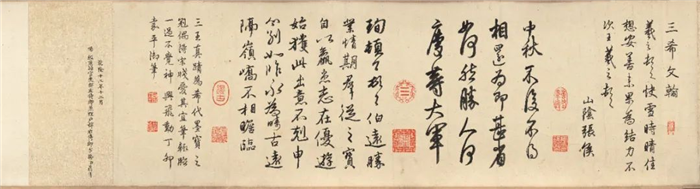 三希文翰
羲之頓首快雪時晴佳
想安善未果為結力不
次王羲之頓首
山陰張侯
中秋不復不得
相還為即甚省
如何然勝人何
慶等大軍
珣頓首頓首伯遠勝
業情期群從之寶
自以羸患志在優遊
始獲此出意不剋申
分別如昨永為疇古遠
隔嶺嶠不相瞻臨
三王真蹟為希代墨寶之
冠偶得宣
一過不覺神與飛動丁卯
嘉平御筆
乾隆十二年十二月